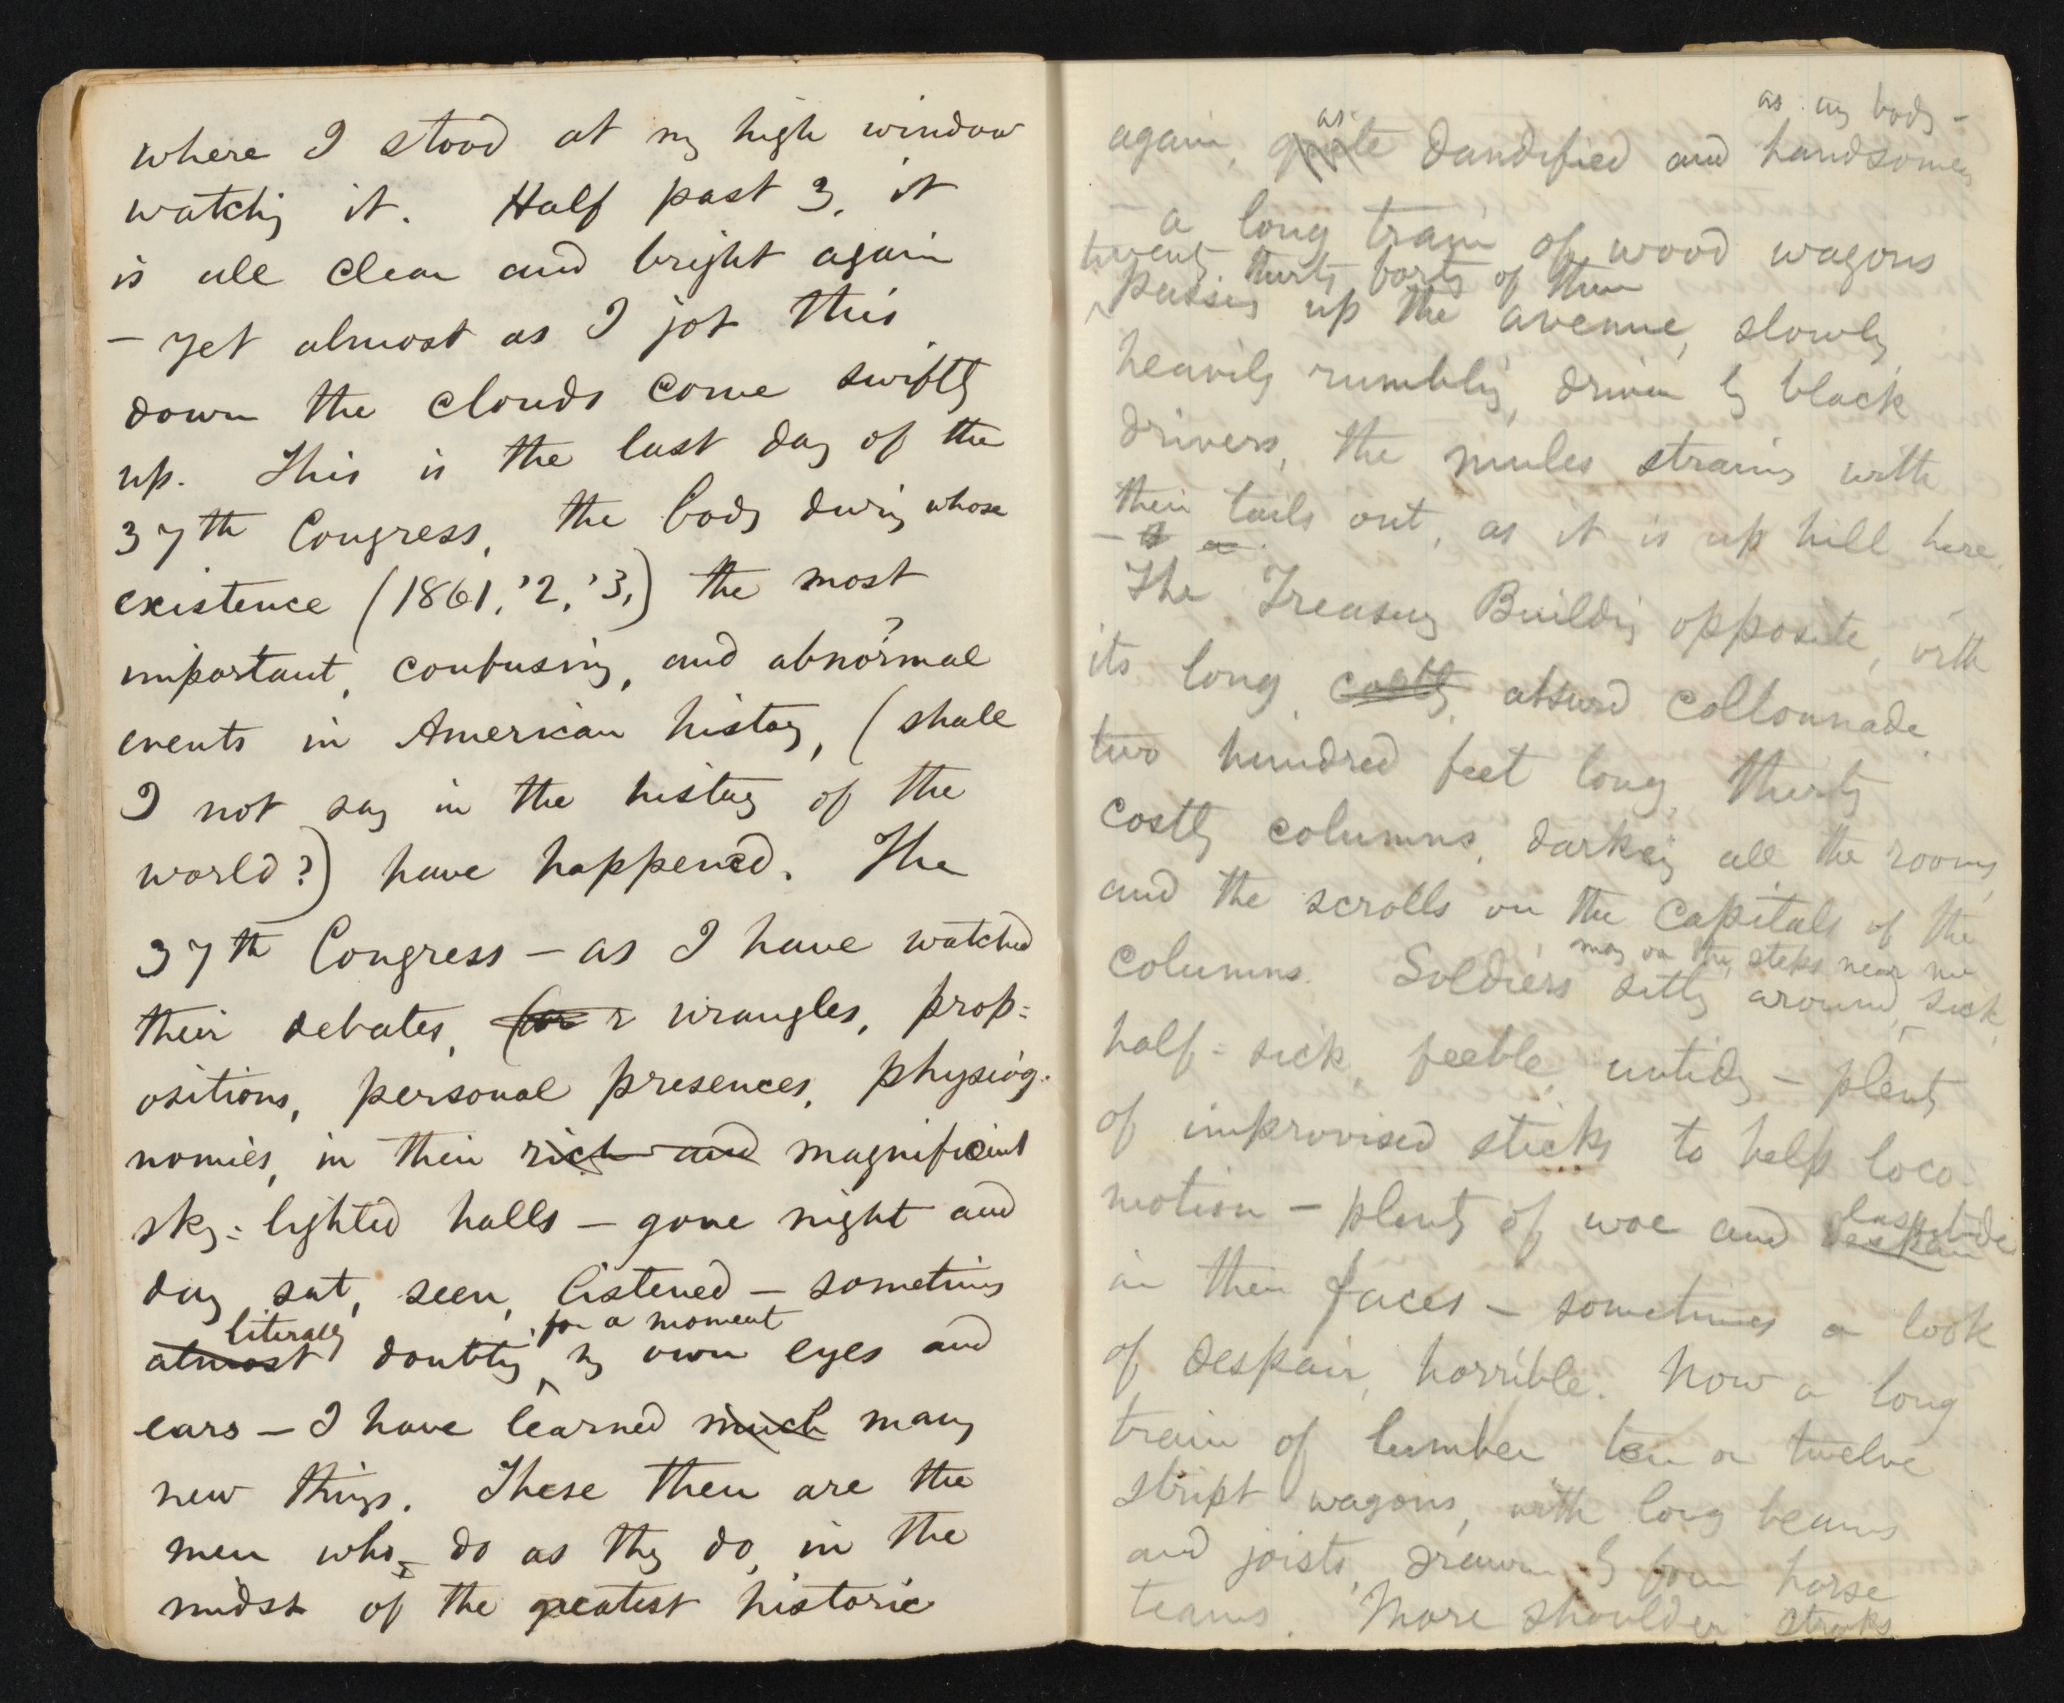 where I stood at my high window
watching it. Half past 3, it
is all clear and bright again
— yet almost as I jot this
down the clouds come swiftly
up. This is the last day of the
37th Congress, the body during whose
existence (1861, '2, '3,) the most
important, confusing, and abnormal
?
events in American history, (shall
I not say in the history of the
world?) have happened. The
37th Congress — as I have watched
their debates, (or wrangles, prop=
ositions, personal presences, physiog-
nomies, in their rich and magnificent
sky=lighted halls — gone night and
day, sat, seen, listened — sometimes
literally for a moment
almost doubting my own eyes and
ears — I have learned much many
new things. These then are the
men who do as they do, in the
midst of the greatest historic
as any body —
as
again, quite dandified and handsome
— a long train of wood wagons
twenty, thirty, forty of them
passing up the avenue, slowly,
heavily rumbling, driven by black
drivers, the mules straining with
their tails out, as it is up hill here.
— a
The Treasury Building opposite, with
its long, costly, absurd collonnade
two hundred feet long, thirty
costly columns, darking all the rooms,
and the scrolls on the capitals of the
columns. Soldiers sitting around, sick,
many on the steps near me
half=sick, feeble, untidy — plenty
of improvised sticks to help loco-
motion — plenty of woe and despair
lassitude
in their faces — sometimes a look
of despair, horrible. Now a long
train of lumber ten or twelve
stript wagons, with long beams
and joists, drawn by four horse
teams. More shoulder straps